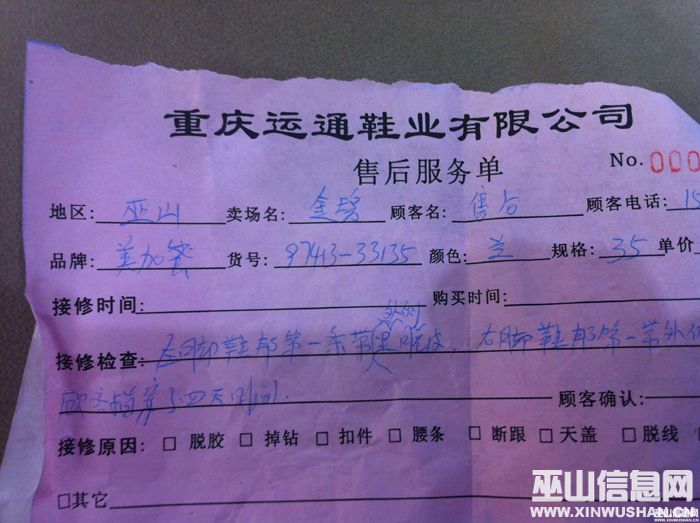 重庆运通鞋业有限公司
售后服务单 No.000
地区: 巫山 卖场名: 金瑞 顾客名: 售后 顾客电话:15
品牌: 美加蜜 货号: 97413-33135 颜色: 兰 规格: 35 单价
接修时间: 购买时间:
外侧
接修检查: 左脚鞋帮第一条带里脱皮、右脚鞋帮第一带外侧
穿了四天时间. 顾客确认:
接修原因: □ 脱胶 □ 掉钻 □ 扣件 □ 腰条 □ 断跟 □ 天盖 □ 脱线
□其它
巫山信息网
WWW.XINWUSHAN.CN